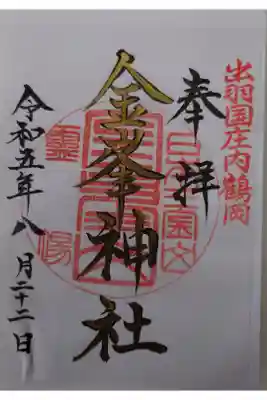 出羽国庄内鶴岡
奉拝
金峯神社
令和五年八月二十二日
靈場